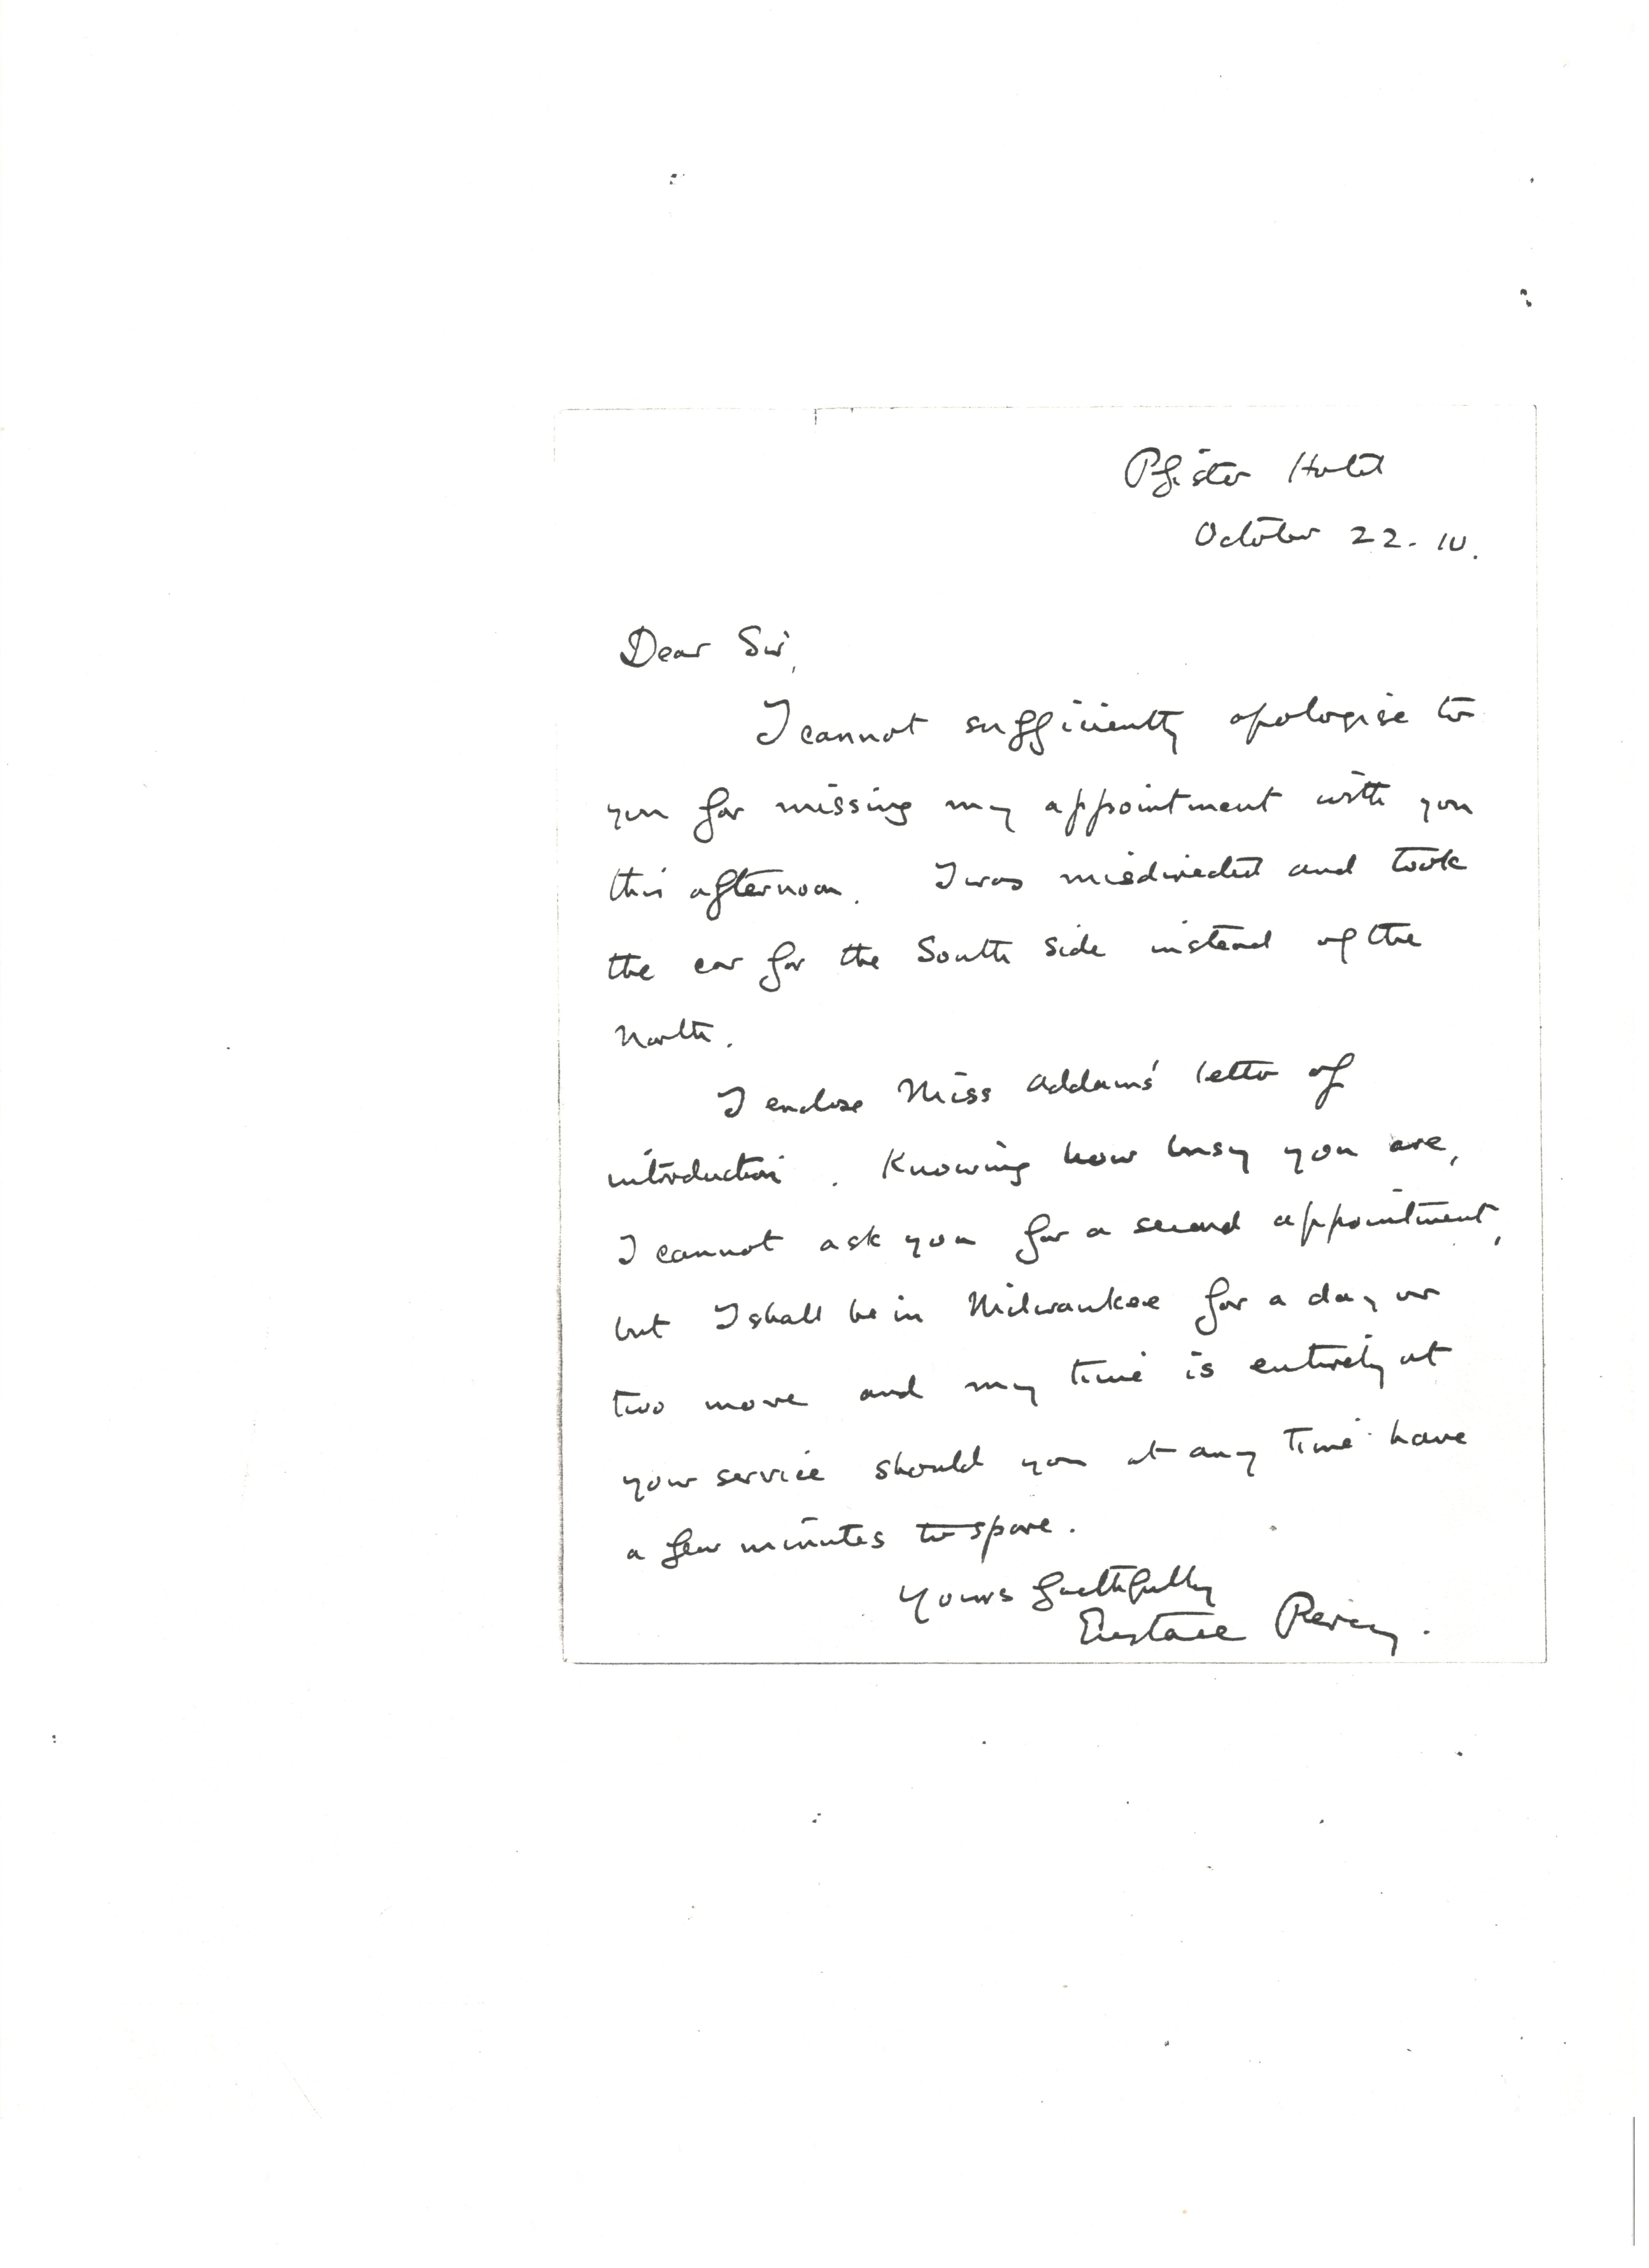 Pfister Hotel
October 22. 10.
Dear Sir,
I cannot sufficiently apologise to
you for missing my appointment with you
this afternoon. I was misdirected and took
the car for the South Side instead of the
North.
I enclose Miss Addams' letter of
introduction. Knowing how busy you are,
I cannot ask you for a second appointment,
but I shall be in Milwaukee for a day or
two more and my time is entirely at
your service should you at any time have
a few minutes to spare.
Yours faithfully
Eustace Percy.